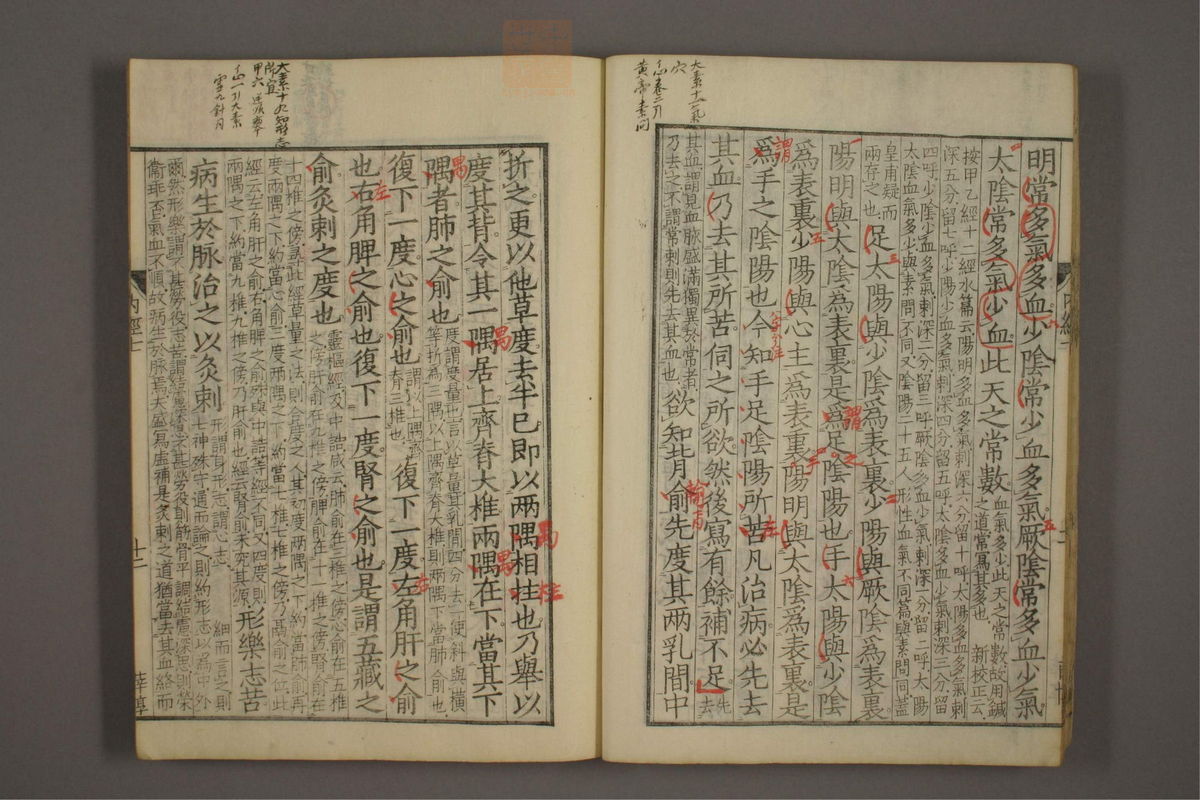 大素十一氣
穴
黃帝素問
明常多氣多血少陰常少血多氣厥陰常多血少氣
太陰常多氣少血此天之常數血氣多少此天之常數故用鍼之道常寫其多也新校正云
按甲乙經十二經水篇云陽明多血多氣刺深六分留十呼太陽多血多氣刺
深五分留七呼少陽少血多氣刺深四分留五呼太陰多血少氣刺深三分留
四呼少陰少血多氣刺深二分留三呼厥陰多血少氣刺深一分留二呼太陽
太陰血氣多少與素問不同又陰陽二十五人形性血氣不同篇與素問同蓋
皇甫疑而
兩存之也足太陽與少陰爲表裏少陽與厥陰爲表裏
陽明與太陰爲表裏是爲足陰陽也手太陽與少陰
爲表裏少陽與心主爲表裏陽明與太陰爲表裏是
爲手之陰陽也今知手足陰陽所苦凡治病必先去
其血乃去其所苦伺之所欲然後寫有餘補不足先去
其血謂見血脉盛滿獨異於常者
乃去之不謂常刺則先去其血也欲知背俞先度其兩乳間中
内經七
大素十九知形志
所宜
折之更以他草度去半已即以兩隅相拄也乃舉以
度其背令其一隅居上齊脊大椎兩隅在下當其下
隅者肺之俞也度謂度量也言以草量其乳間四分去一使斜與橫
等折爲三隅以上隅齊脊大椎則兩隅下當肺俞也
復下一度心之俞也謂以上隅齊脊三椎也復下一度左角肝之俞
也右角脾之俞也復下一度腎之俞也是謂五藏之
俞灸刺之度也靈樞經及中誥咸云肺俞在三椎之傍心俞在五椎
之傍肝俞在九椎之傍脾俞在十一椎之傍腎俞在
十四椎之傍尋此經草量之法則合度之人其初度兩隅之下約當肺俞再
度兩隅之下約當心俞三度兩隅之下約當七椎七椎之傍乃鬲俞之位此
經云左角肝之俞右角脾之俞殊與中誥等經不同又四度則
兩隅之下約當九椎九椎之傍乃肝俞也經云腎俞未究其源形樂志苦
病生於脉治之以灸刺形謂身形志謂心志細而言之則
七神殊守通而論之則約形志以爲中外
爾然形樂謂不甚勞役志苦謂結慮深思不甚勞役則筋骨平調結慮深思則榮
衞乖否氣血不順故病生於脉焉夫盛寫虛補是灸刺之道猶當去其血絡而
内經七
十二